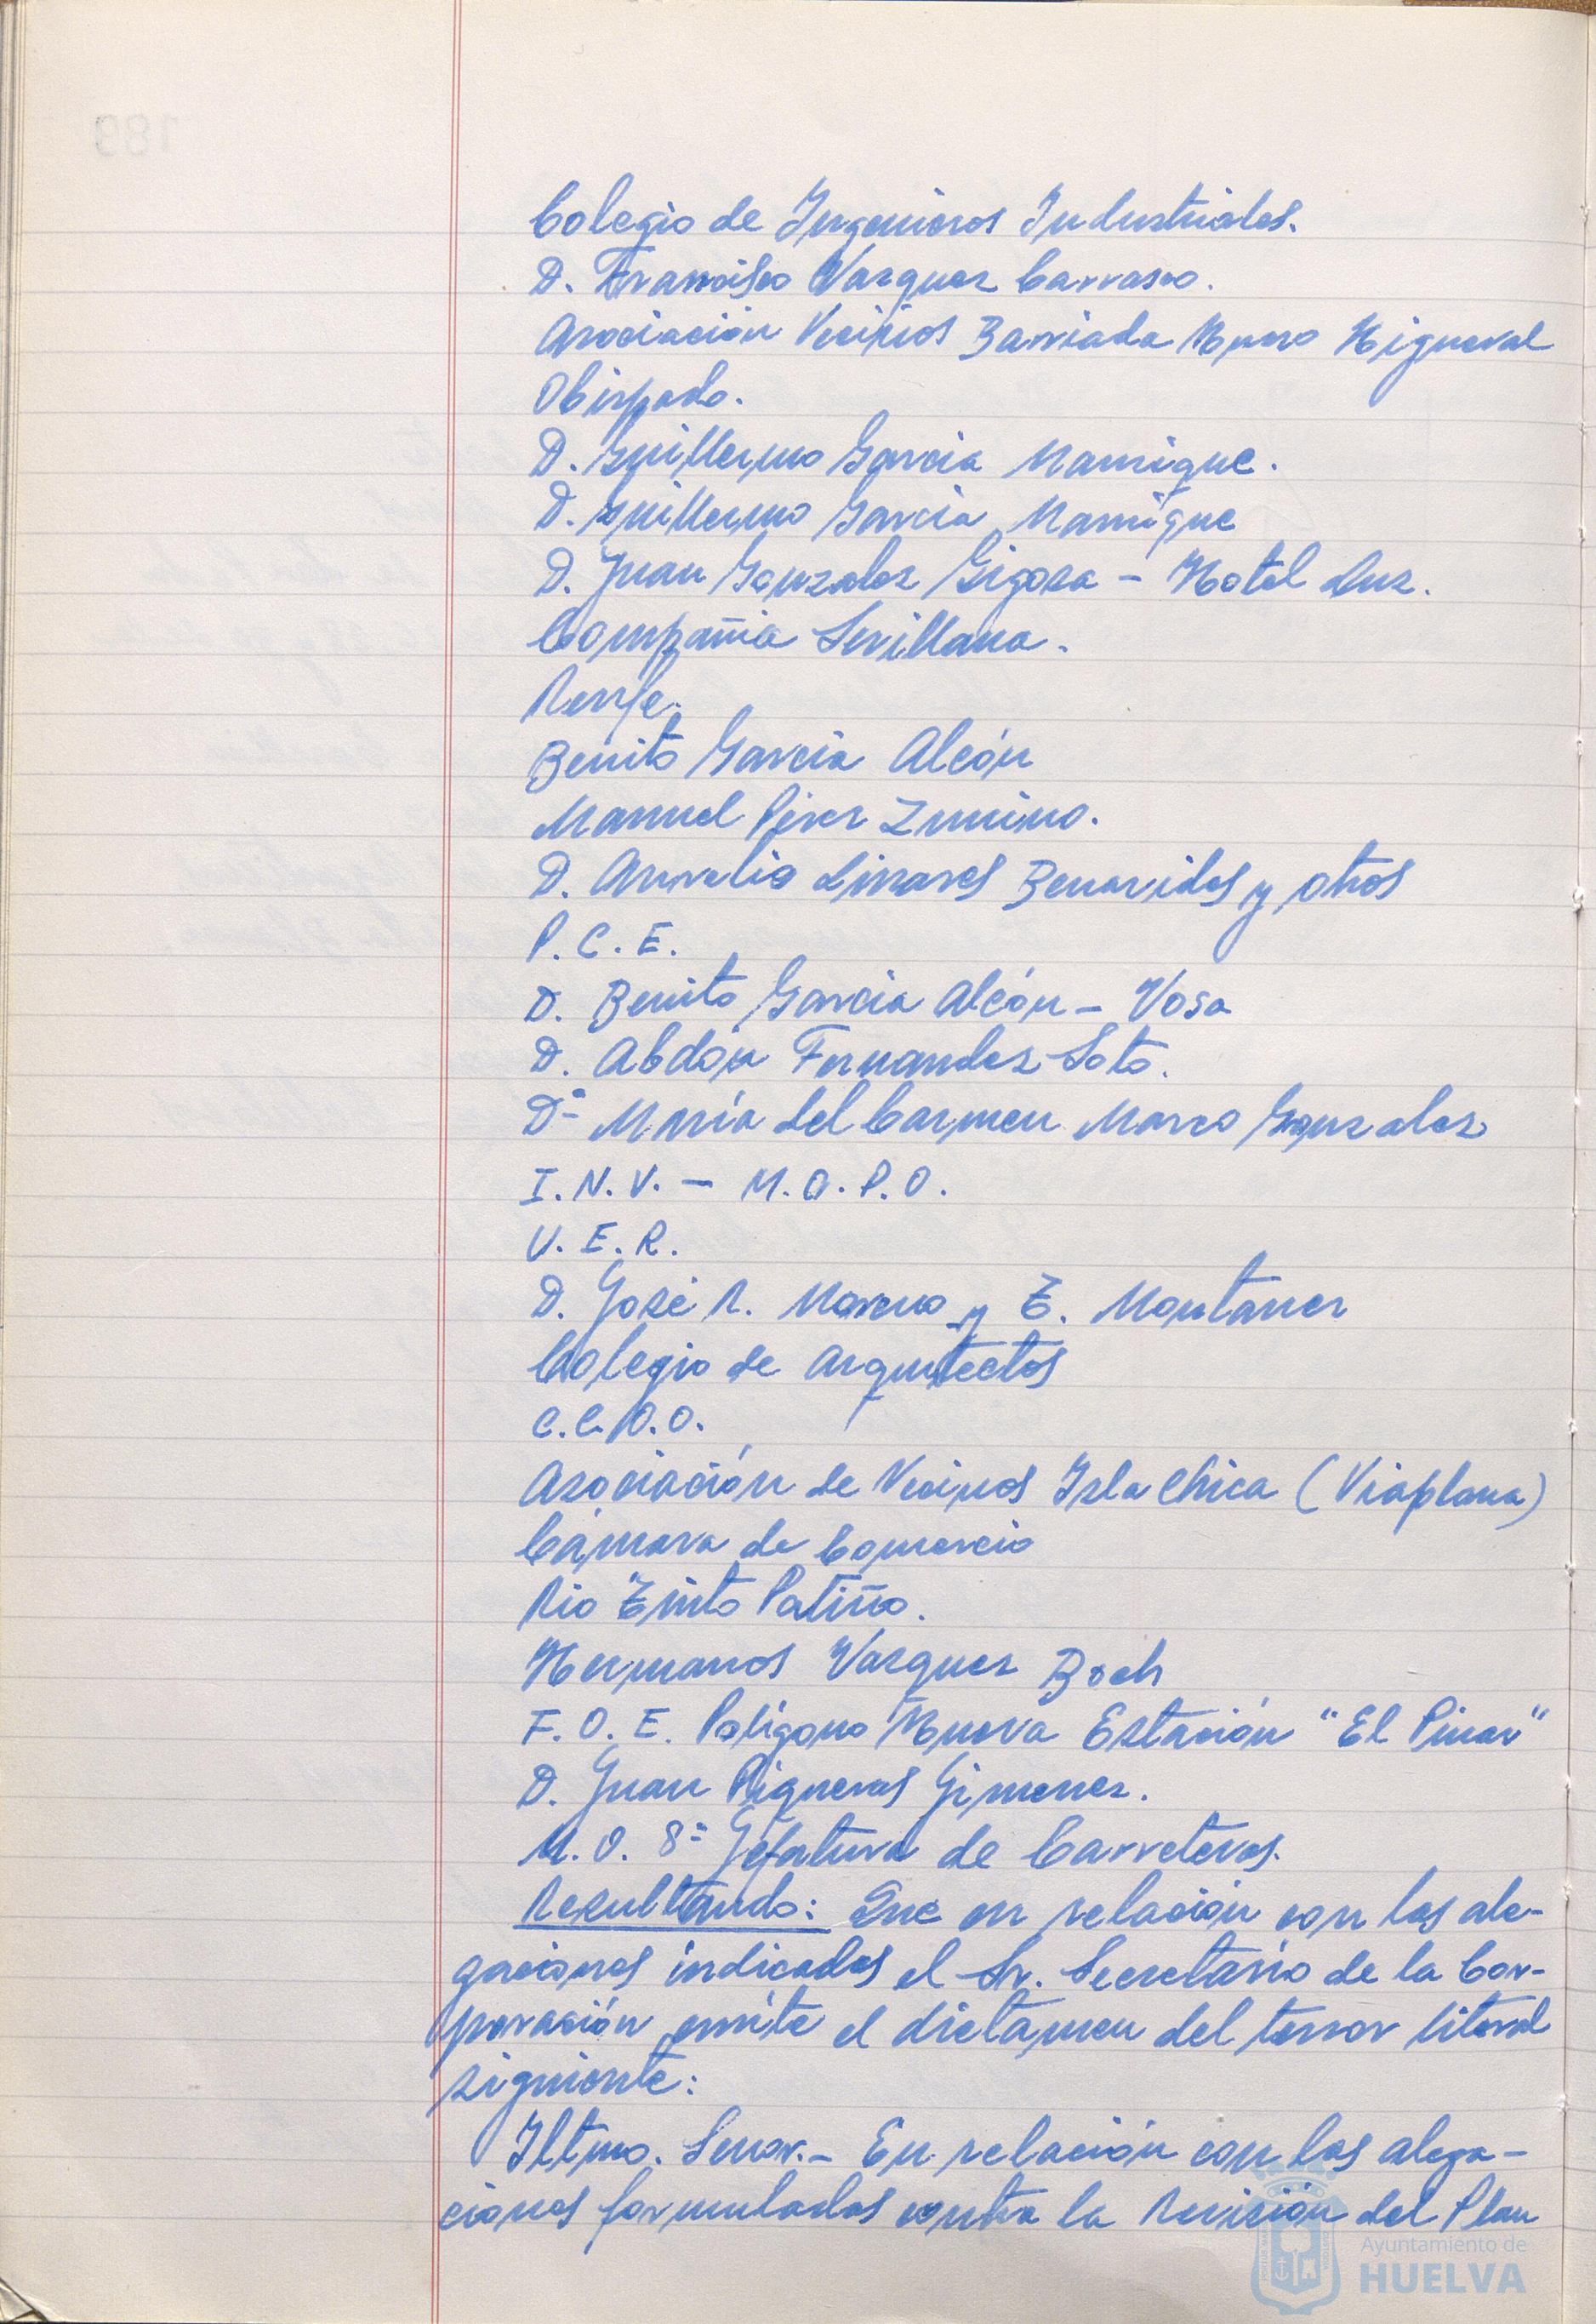 Colegio de Ingenieros Industriales.
D. Francisco Vazquez Carrasco.
Asociación Vecinos Barriada Nuevo Higueral
Obispado.
D. Guillermo Garcia Manrique.
D. Guillermo Garcia Manrique
D. Juan Gonzalez Gigosa - Hotel Luz.
Compañia Sevillana.
Renfe.
Benito Garcia Alcón
Manuel Pérez Zunino.
D. Aurelio Linares Benavides y otros
P.C.E.
D. Benito Garcia Alcón - Vosa
D. Abdón Fernandez Soto.
Dª María del Carmen Marco Gonzalez
I.N.V. - M.O.P.O.
V.E.R.
D. José R. Moreno y E. Montaner
Colegio de Arquitectos
C.C.O.O.
Asociación de Vecinos Isla Chica (Viaplana)
Cámara de Comercio
Rio Tinto Patiño.
Hermanos Vazquez Boch
F.O.E. Polígono Nueva Estación "El Pinar"
D. Juan Pigueras Gimenez.
M.O. 8ª Jefatura de Carreteras.
Resultando: Que en relación con las ale-
gaciones indicadas el Sr. Secretario de la Cor-
poración emite el dictamen del tenor literal
siguiente:
Iltmo. Senor.- En relación con las alega-
ciones formuladas contra la Revisión del Plan
Ayuntamiento de
HUELVA
189